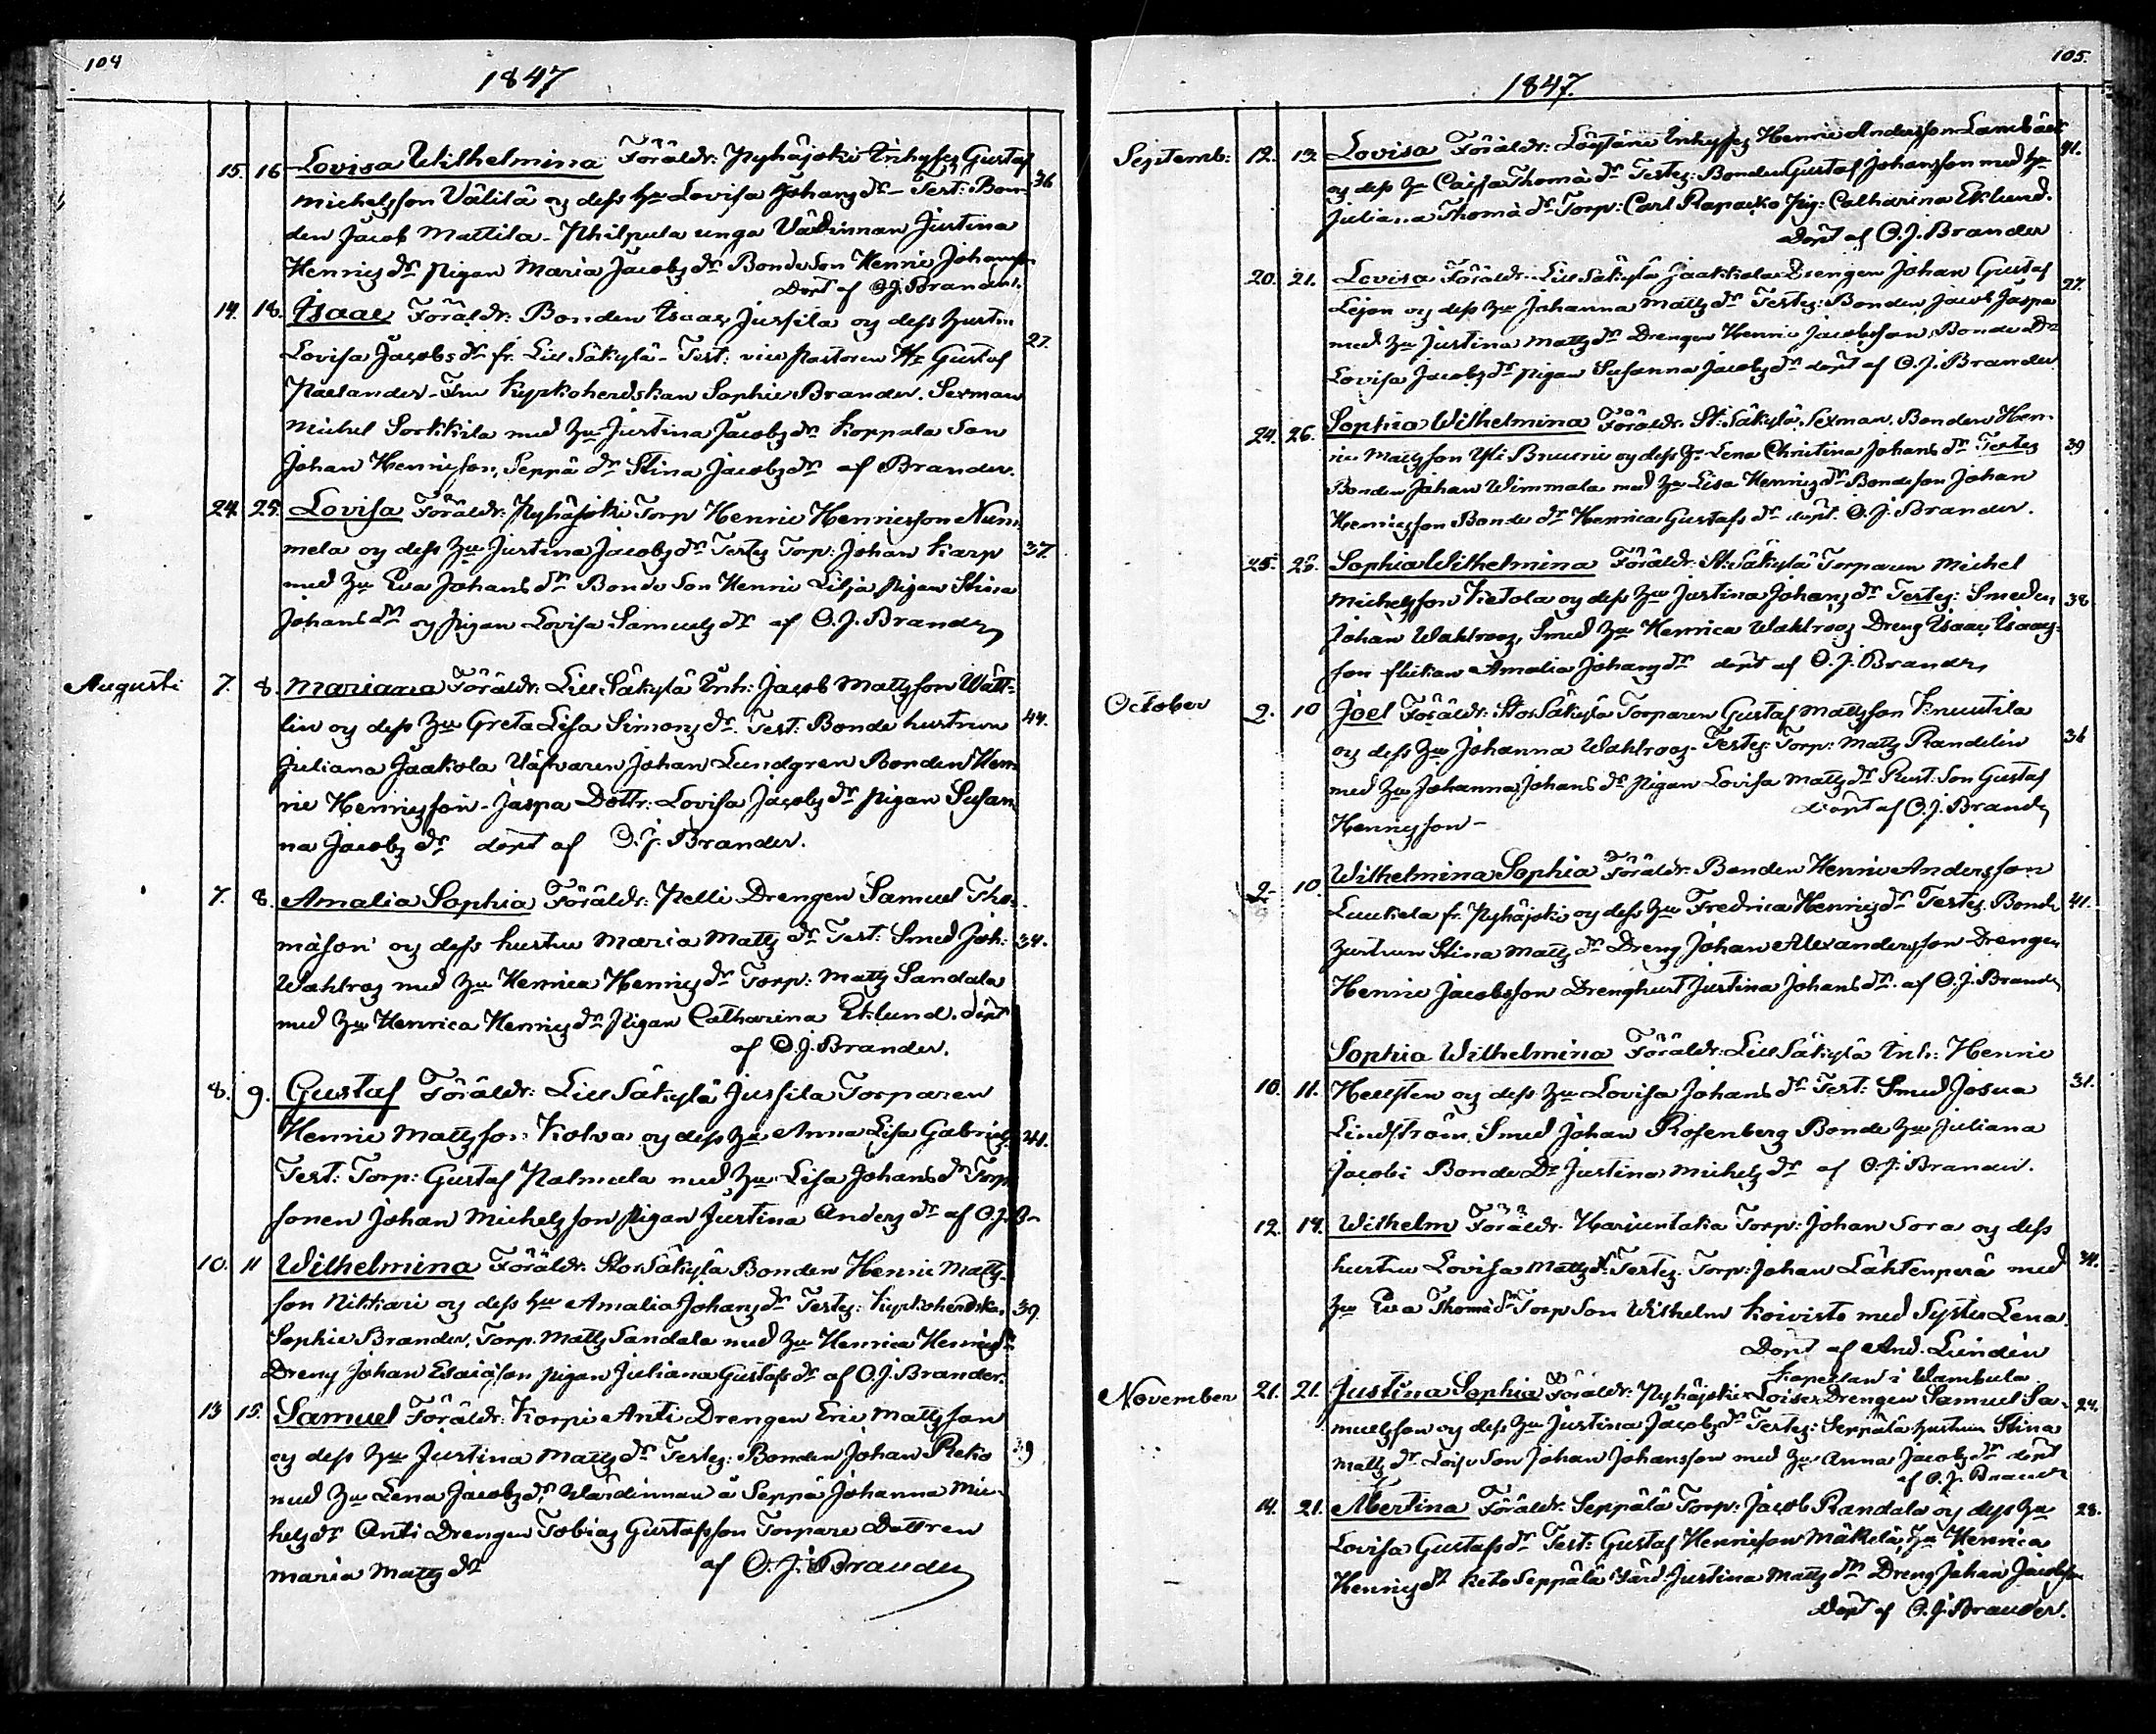 104
1847
15. 16 Lovisa Wilhelmina Föräldr: Pyhäjoki Inhyses Gustaf
Michelsson Välilä og dess hu Lovisa Johans dr - Test: Bon- 36
den Jacob Mattila - Philpula unga Värdinnan Justina
Henrics dr Pigan Maria Jacobs dr Bonde Son Henric Johansson
Döpt af O.J. Brander.
14. 18. Isaac Föräldr: Bonden Isaac Jussila og dess hustru
Lovisa Jacobs dr fr. Lill Säkylä - Test: vice Pastoren Hr Gustaf 27.
Paelander - Fru Kyrkoherdskan Sophie Brander. Sexman
Michel Sorkkila med hu Justina Jacobs dr Koppala Son
Johan Henricsson, Seppä dr Stina Jacobs dr af Brander.
24. 25. Lovisa Föräldr: Pyhäjoki Torp Henric Henricsson Num-
mela og dess hu Justina Jacobs dr Testes Torp: Johan Karp 37.
med hu Eva Johans dr Bonde Son Henric Lilja Pigan Stina
Johans dr og Pigan Lovisa Samuels dr af O.J. Brander
Augusti 7. 8. Mariana Föräldr: Lill Säkylä Inh: Jacob Mattsson Wätt-
lin og dess hu Greta Lisa Simons dr. Test: Bonde hustrun 44.
Juliana Jaakola Uäfvaren Johan Lundgren Bonden Hen-
ric Henricsson - Jaspa Dottr: Lovisa Jacobs dr Pigan Susan-
na Jacobs dr döpt af O.J. Brander.
7. 8. Amalia Sophia Föräldr: Pelli Drengen Samuel Tho-
mäson og dess hustru Maria Matts dr Test: Smed Joh: 34.
Wahlroos med hu Henrica Henrics dr Torp: Matts Sandala
med hu Henrica Henrics dr Pigan Catharina Eklund. döpt
af O.J. Brander.
8. 9. Gustaf Föräldr: Lill Säkylä Jussila Torparen
Henric Mattsson Kolva og dess hu Anna Lisa Gabriels 41.
Test: Torp: Gustaf Palmula med hu Lisa Johans dr Torp
sonen Johan Michelsson Pigan Justina Anders dr af O.J. B-
10. 11 Wilhelmina Föräldr: Stor Säkylä Bonden Henric Matts-
son Nikkari og dess hu Amalia Johans dr Testes: Kyrkoherdskan 39.
Sophie Brander, Torp. Matts Sandala med hu Henrica Henrics dr
Dreng Johan Esaiason Pigan Juliana Gustafs dr af O.J. Brander.
13 15. Samuel Föräldr: Korpi Anti Drengen Eric Mattsson
og dess hu Justina Matts dr Testes: Bonden Johan Reko 39
med hu Lena Jacobs dr, Wärdinnan å Seppä Johanna Mic-
hels dr Anti Drengen Tobias Gustafsson Torpare Dottren
Maria Matts dr af O.J. Brander
105.
1847.
Septemb: 12. 13. Lovisa Föräldr: Löytäne Inhyses Henric Andersson Lambäck 41.
og dess hu Caisa Thomä dr Testes: Bonden Gustaf Johansson med hu
Juliana Thomä dr Torp: Carl Rapacko Pig: Catharina Eklund.
Döpt af O.J. Brander
20. 21. Lovisa Föräldr: Lill Säkylä Jaakkola Drengen Johan Gustaf
Lejon og dess hu Johanna Matts dr Testes: Bonden Jacob Jaspa 27.
med hu Justina Matts dr Drengen Henric Jacobsson, Bonde Dr
Lovisa Jacobs dr Pigan Susanna Jacobs dr döpt af O.J. Brander
24. 26. Sophia Wilhelmina Föräldr: St: Säkylä, Sexman, Bonden Hen-
ric Mattsson Yli Bruuri og dess hu Lena Christina Johans dr Testes 39
Bonden Johan Wimmala med hu Lisa Henrics dr Bondeson Johan
Henricsson Bonde dr Henrica Gustafs dr döpt. O.J. Brander.
25. 28. Sophia Wilhelmina Föräldr: St: Säkylä Torparen Michel
Michelsson Ketola og dess hu Justina Johans dr Testes: Smeden 38
Johan Wahlroos, Smed hu Henrica Wahlroos Dreng Isaac Isaacs-
son flickan Amalia Johans dr döpt af O.J. Brander
October 9. 10 Joel Föräldr: Stor Säkylä Torparen Gustaf Mattsson Knuutila
og dess hu Johanna Wahlroos - Testes: Torp: Matts Randelin 36
med hu Johanna Johans dr Pigan Lovisa Matts dr Rust: Son Gustaf
Henricsson - Döpt af O.J. Brander
9. 10 Wilhelmina Sophia Föräldr: Bonden Henric Andersson
Luukela fr. Pyhäjoki og dess hu Fredrica Henrics dr Testes. Bonde 41.
hustrun Stina Matts dr Dreng Johan Alexandersson Drengen
Henric Jacobsson Drenghust Justina Johans dr. af O.J. Brander
Sophia Wilhelmina Föräldr: Lill Säkylä Inh: Henric
10. 11. Hellsten og dess hu Lovisa Johans dr Test: Smed Josua 31.
Lindström, Smed Johan Rosenberg Bonde hu Juliana
Jacobi Bonde Dr Justina Michels dr af O.J. Brander.
12. 14. Wilhelm Föräldr: Harjuntaka Torp: Johan Sora og dess
hustru Lovisa Matts dr Testes: Torp: Johan Lähtenperä med 34.
hu Eva Thomä dr Torp Son Wilhelm Koivisto med Syster Lena.
Döpt af And. Lundén
Kapellan i Wambula
November 21. 21. Justina Sophia Föräldr: Pyhäjoki Loise Drengen Samuel Sa-
muelsson og dess hu Justina Jacobs dr Testes: Seppälä hustrun Stina 24.
Matts dr Loise Son Johan Johansson med hu Anna Jacobs dr döpt
af O.J. Brander
14. 21. Albertina Föräldr: Seppälä Torp: Jacob Randala og dess hu 28.
Lovisa Gustafs dr Test: Gustaf Henricsson Mäkelä, hu Henrica
Henrics dr Keto Seppälä Värd: Justina Matts dr Dreng Johan Jacobsson
Döpt af O.J. Brander.